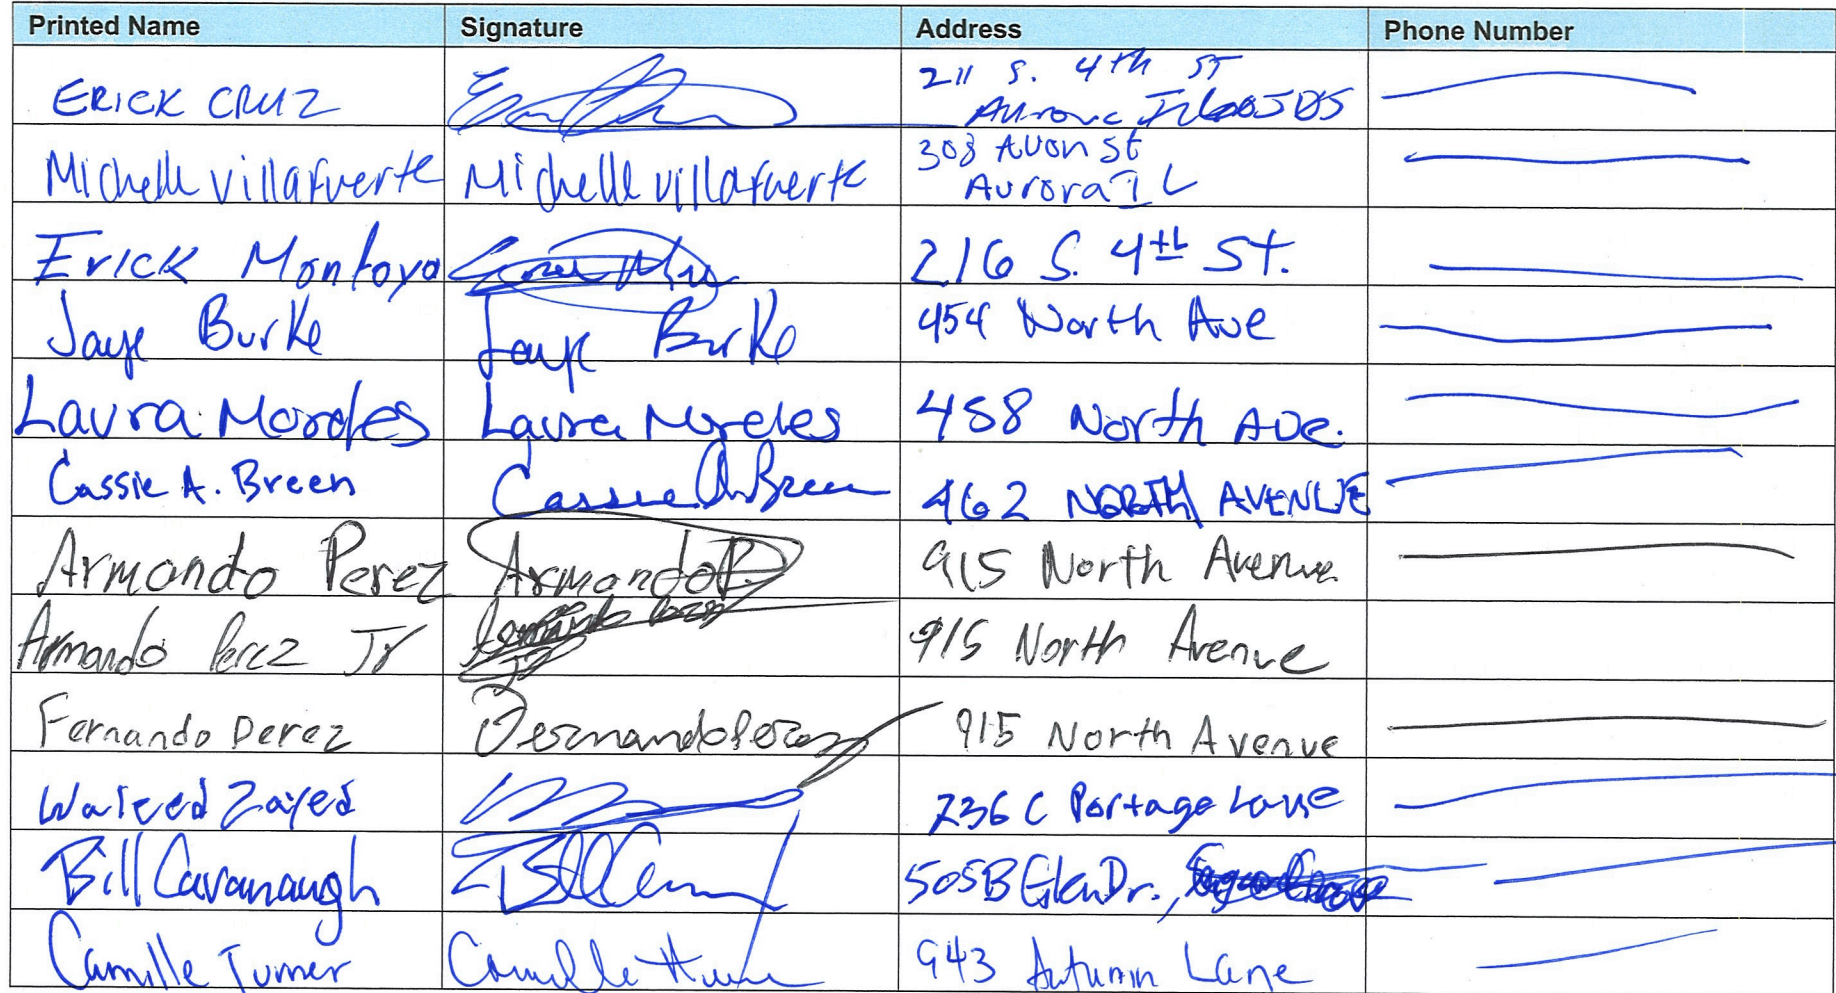 Printed Name Signature Address Phone Number
211 S. 4th ST
ERICK CRUZ Aurora IL 60505
308 Avon st
Michelle Villafuerte Michelle Villafuerte Aurora IL
Erick Montoya 216 S. 4th St.
Jaye Burke Jaye Burke 454 North Ave
Laura Morales Laura Morales 458 North Ave.
Cassie A. Breen Cassie A. Breen 462 NORTH AVENUE
Armando Perez Armando P 915 North Avenue
Armando Perez Jr Armando Perez Jr 915 North Avenue
Fernando Perez Fernando Perez 915 North Avenue
Waleed Zayed 736 C Portage Lane
Bill Cavanaugh Bill 505B Glen Dr.,
Camille Turner Camille 943 Autumn Lane